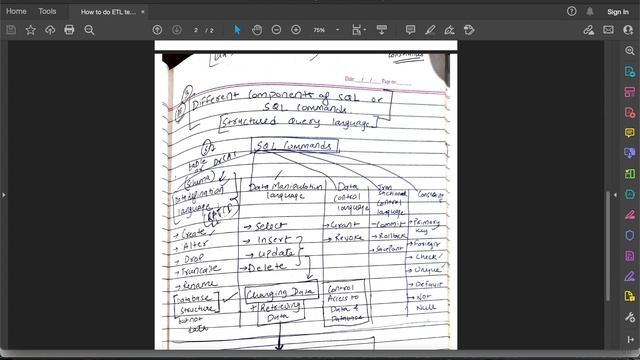 Home
Tools
How to do ETL te...
Sign In
2 / 2
75%
Constraints
Date / / Page no.
Different Components of SQL or
SQL Commands.
Structured Query language
SQL Commands
table
Schema
Data Definition
language
→ Create
→ Alter
→ Drop
→ Truncate
→ Rename
Database
Structure
but not
data
Data Manipulation
language
→ Select
→ Insert
→ Update
→ Delete
Changing Data
+ Retrieving
Data
Data
Control
language
→ Grant
→ Revoke
Control
Access to
Data &
Database
Tran
Sactional
Control
language
→ Commit
→ Rollback
→ SavePoint
→ Primary
Key
→ Foreign
→ Check
→ Unique
→ Default
→ Not
Null